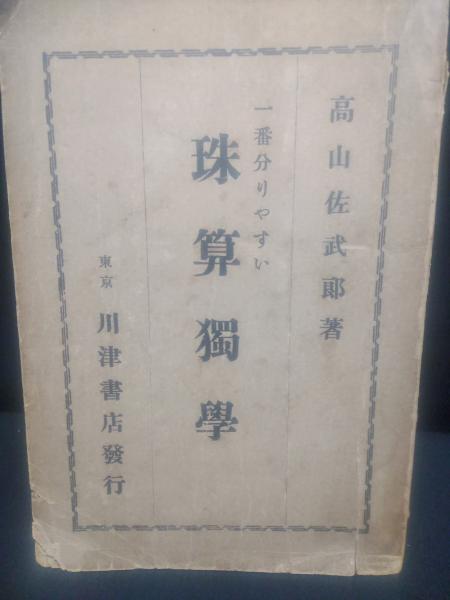 高山佐武郎著
一番分りやすい
珠算獨學
東京
川津書店發行